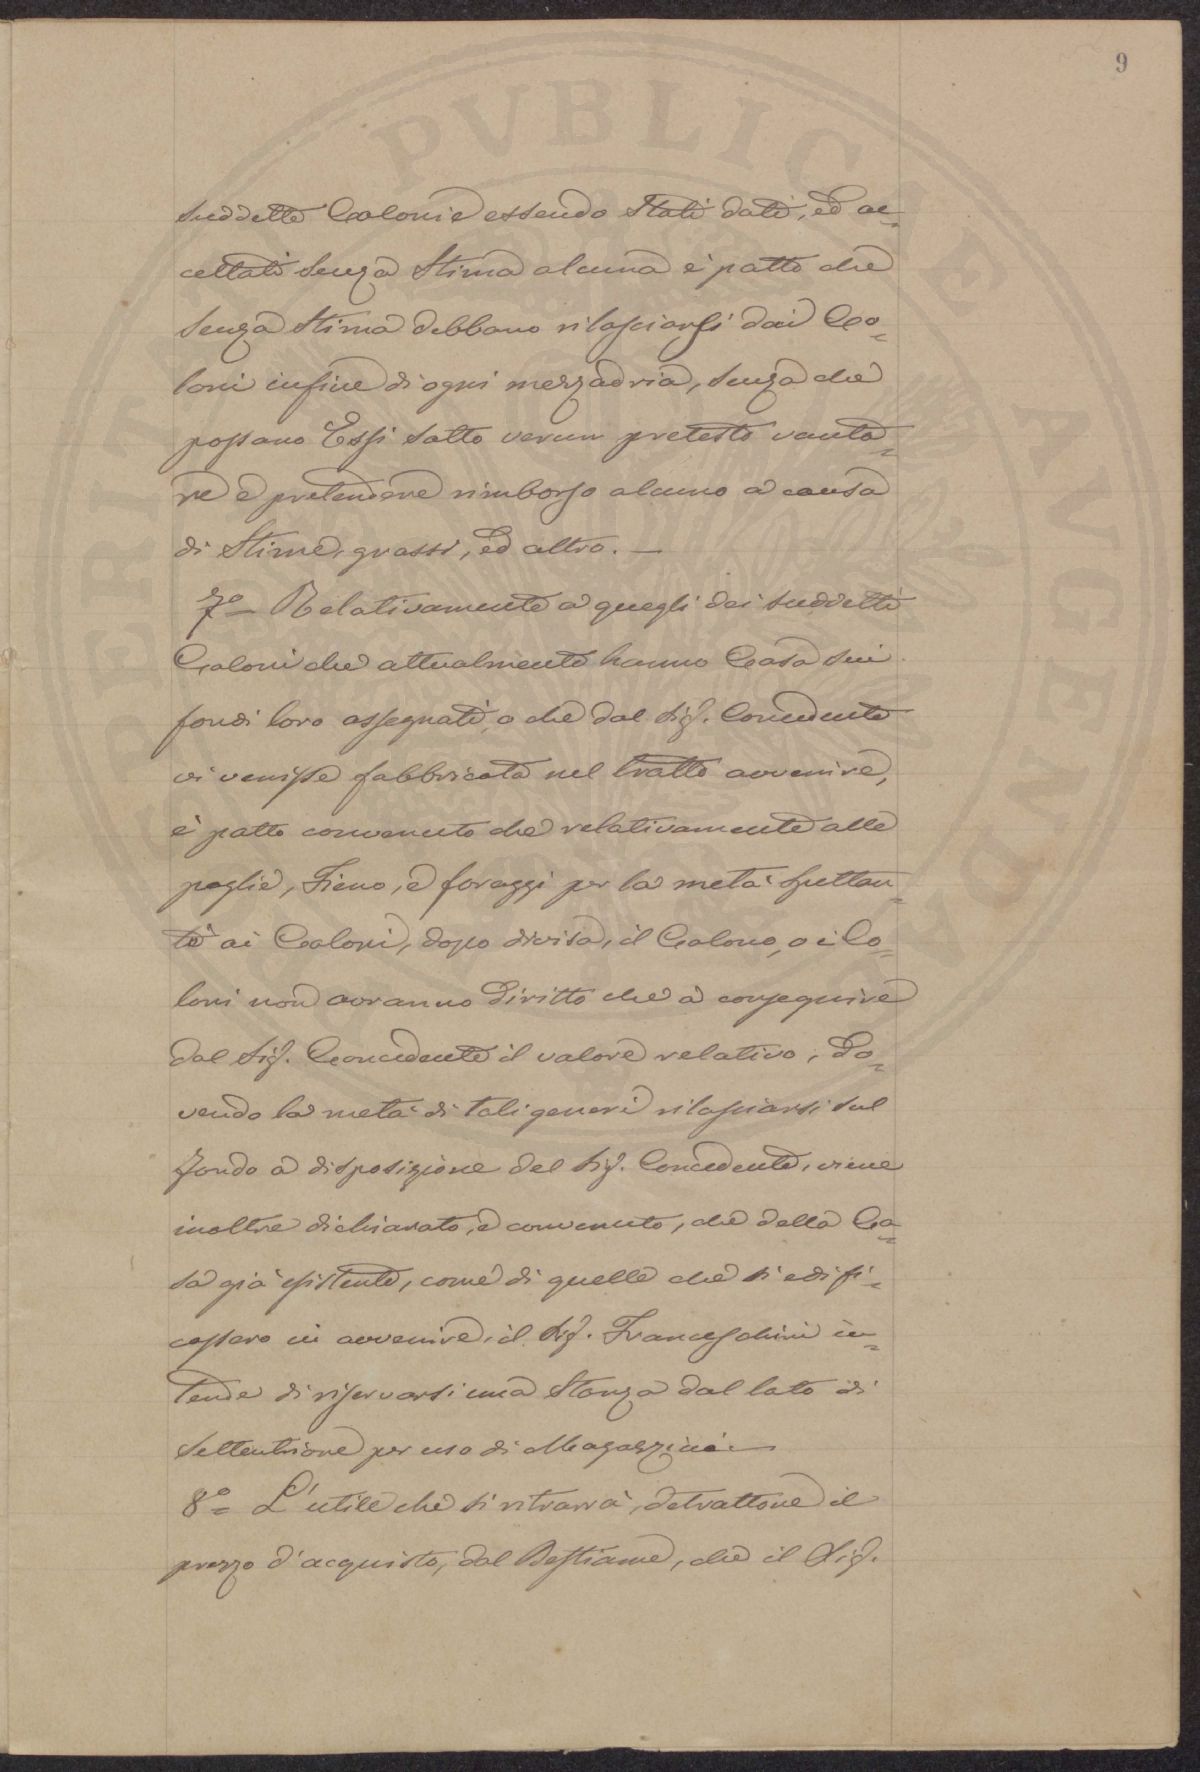 9
suddette Colonie essendo stati dati, ed ac-
cettati senza Stima alcuna è patto che
senza Stima debbano rilasciarsi dai Co-
loni infine di ogni mezzadria, senza che
possano Essi sotto verun pretesto vanta-
re e pretendere rimborso alcuno a causa
di Stime, grassi, ed altro. —
7º Relativamente a quegli dei suddetti
Coloni che attualmente hanno Casa sui
fondi loro assegnati, o che dal Sig. Concedente
vi venisse fabbricata nel tratto avvenire,
è patto convenuto che relativamente alle
paglie, Fieno, e foraggi per la metà spettan-
te ai Coloni, dopo divisa, il Colono, o i Co-
loni non avranno Diritto che a conseguire
dal Sig. Concedente il valore relativo, Do-
vendo la metà di tali generi rilasciarsi sul
Fondo a disposizione del Sig. Concedente, viene
inoltre dichiarato, e convenuto, che della Ca-
sa già esistente, come di quelle che si edifi-
cassero in avvenire, il Sig. Franceschini in-
tende di riservarsi una Stanza dal lato di
Settentrione per uso di Magazzini —
8º L'utile che si ritrarrà, detrattone il
prezzo d'acquisto, dal Bestiame, che il Sig.
PVBLICAE
AVGENDAE